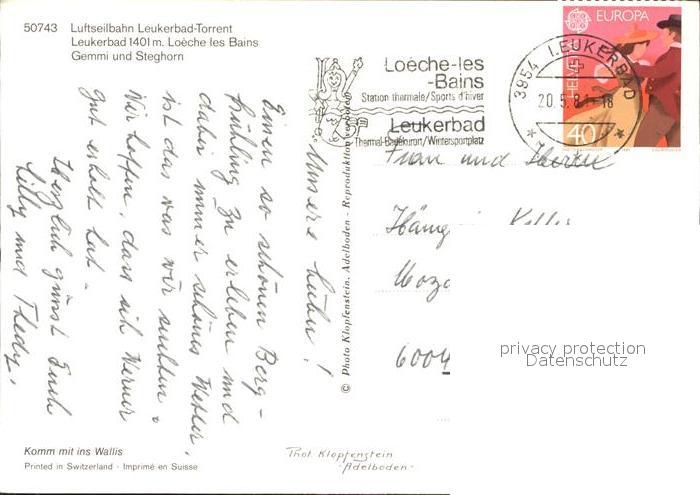 50743 Luftseilbahn Leukerbad-Torrent
Leukerbad 1401 m. Loèche les Bains
Gemmi und Steghorn
Loèche-les
-Bains
Station thermale/Sports d'hiver
Leukerbad
Thermal-Badekurort/Wintersportplatz
3954 LEUKERBAD
20.5.8 -18
EUROPA
HELVETIA
40
Unsere Lieben!
Einen so schönen Berg-
frühling zu erleben und
dabei immer schönes Wetter,
ist das was wir suchten.
Wir hoffen, dass sich Werner
gut erholt hat.
Herzlich grüsst Euch
Lilly und Thedy.
© Photo Klopfenstein, Adelboden - Reproduktion verboten
Frau und Herrn
6004
privacy protection
Datenschutz
Komm mit ins Wallis
Printed in Switzerland - Imprimé en Suisse
Phot. Klopfenstein
-Adelboden-